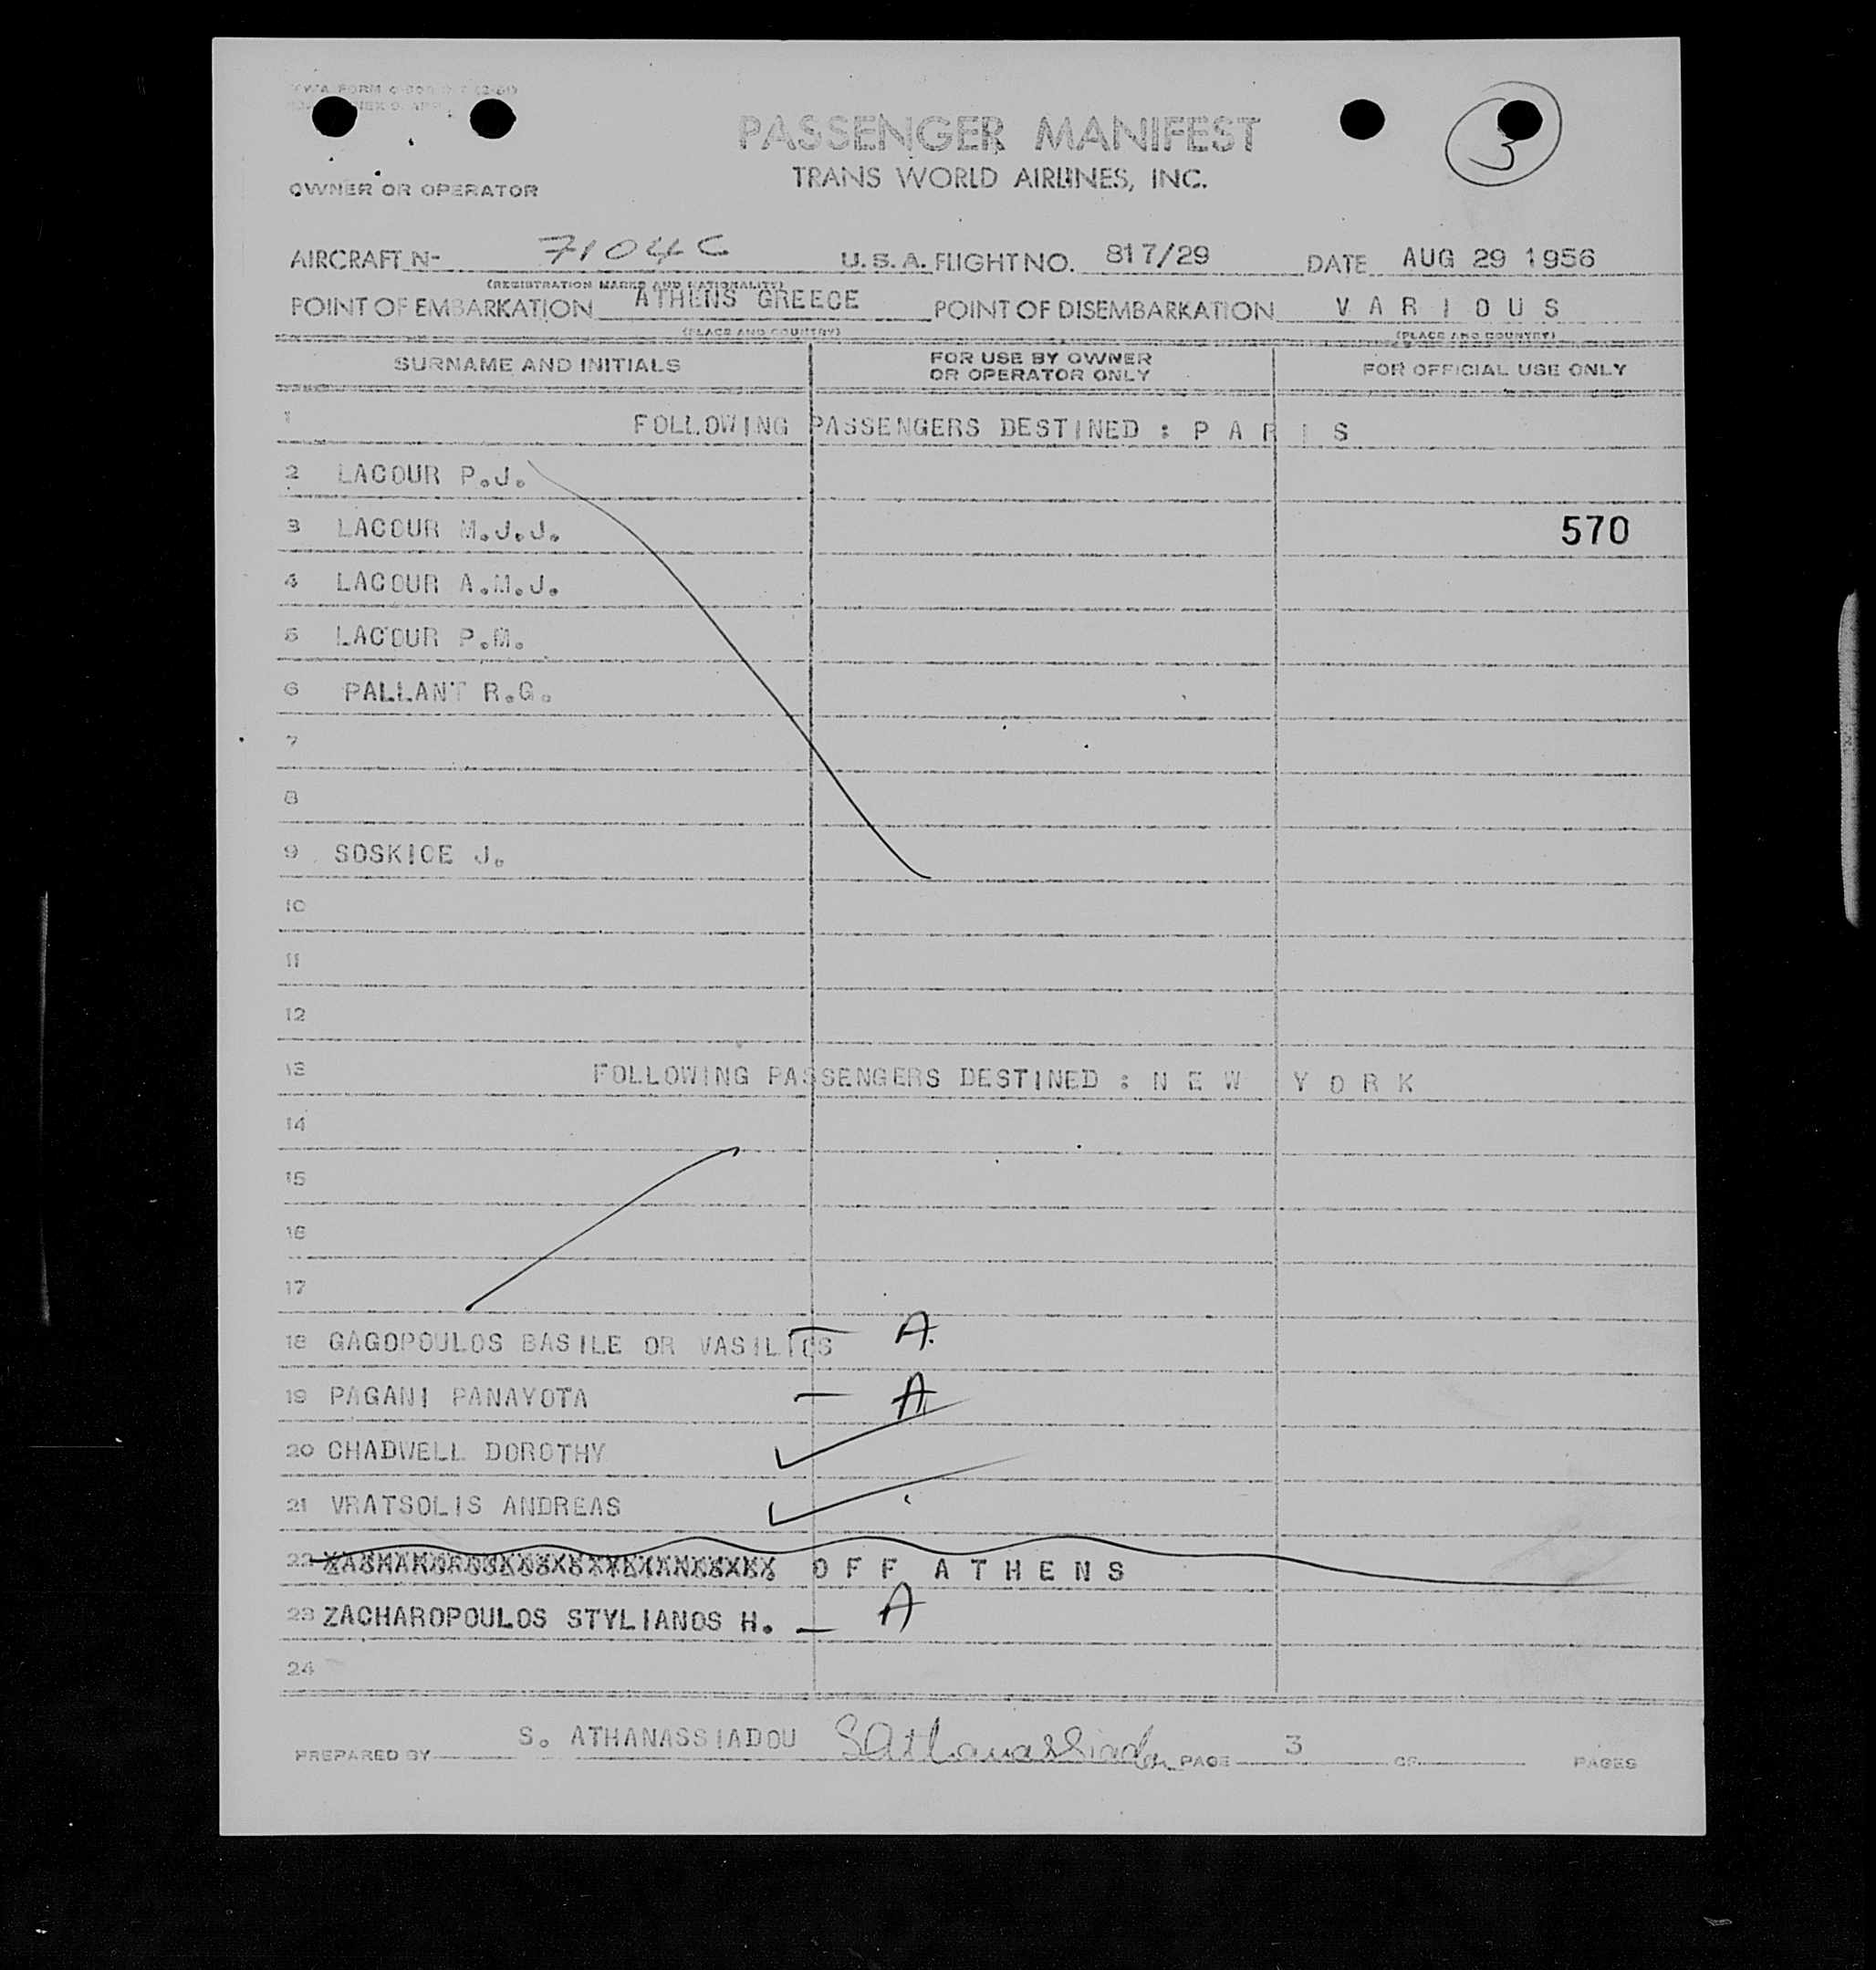 TWA FORM
PASSENGER MANIFEST
3
TRANS WORLD AIRLINES, INC.
OWNER OR OPERATOR
AIRCRAFT N- 7104C U.S.A. FLIGHT NO. 817/29 DATE AUG 29 1956
(REGISTRATION MARKS AND NATIONALITY)
POINT OF EMBARKATION ATHENS GREECE POINT OF DISEMBARKATION V A R I O U S
(PLACE AND COUNTRY) (PLACE AND COUNTRY)
SURNAME AND INITIALS FOR USE BY OWNER OR OPERATOR ONLY FOR OFFICIAL USE ONLY
1 FOLLOWING PASSENGERS DESTINED : P A R I S
2 LACOUR P.J.
3 LACOUR M.J.J. 570
4 LACOUR A.M.J.
5 LACOUR P.M.
6 PALLANT R.G.
7
8
9 SOSKICE J.
10
11
12
13 FOLLOWING PASSENGERS DESTINED : N E W Y O R K
14
15
16
17
18 GAGOPOULOS BASILE OR VASILIOS — A.
19 PAGANI PANAYOTA — A
20 CHADWELL DOROTHY ✓
21 VRATSOLIS ANDREAS ✓
22 O F F A T H E N S
23 ZACHAROPOULOS STYLIANOS H. — A
24
PREPARED BY S. ATHANASSIADOU SAthanassiadou PAGE 3 OF PAGES